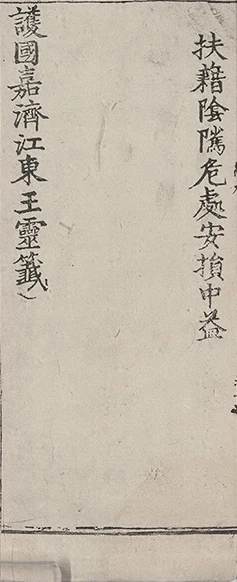 扶藉陰隲危處安損中益
護國嘉濟江東王靈籤